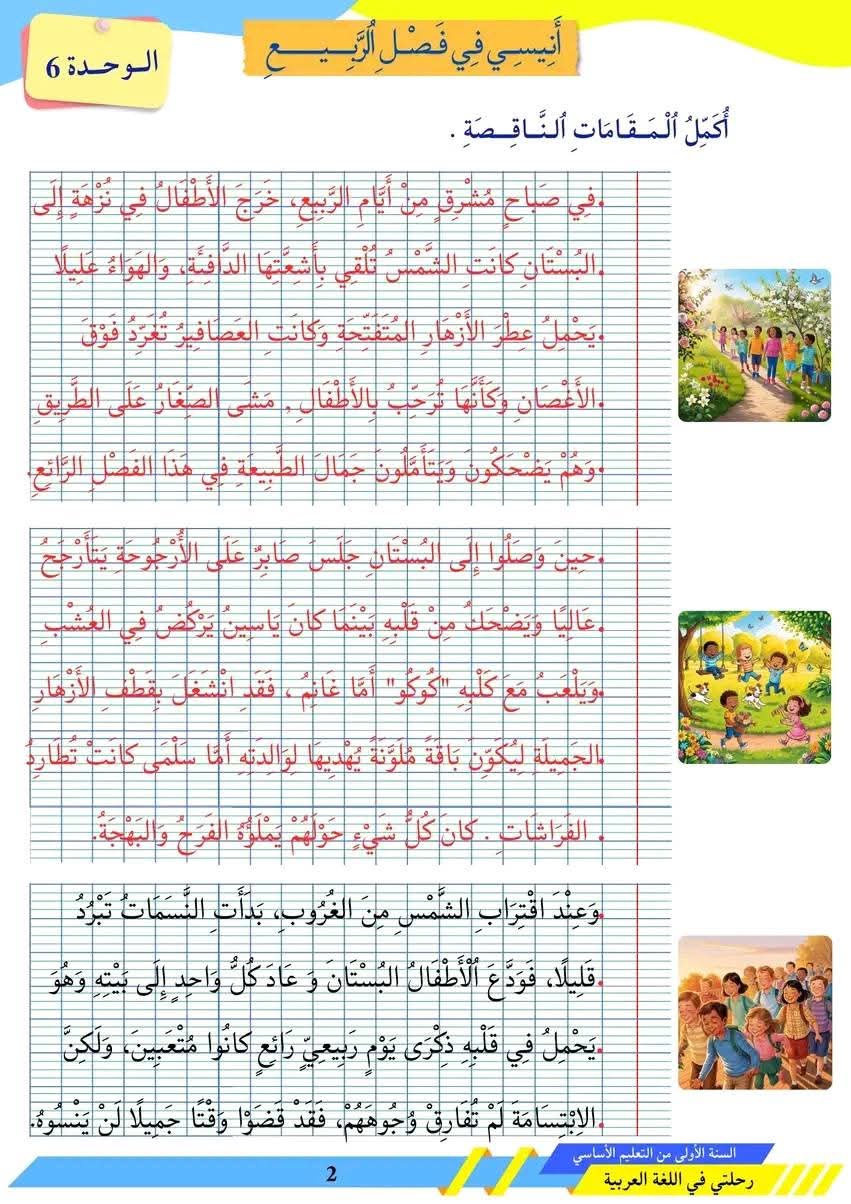 أَنِيسِي فِي فَصْلِ ٱلرَّبِيعِ
الوحدة 6
أُكَمِّلُ ٱلْمَقَامَاتِ ٱلنَّاقِصَةِ .
.فِي صَبَاحٍ مُشْرِقٍ مِنْ أَيَّامِ الرَّبِيعِ، خَرَجَ الأَطْفَالُ فِي نُزْهَةٍ إِلَى
.البُسْتَانِ كَانَتِ الشَّمْسُ تُلْقِي بِأَشِعَّتِهَا الدَّافِئَةِ، وَالهَوَاءُ عَلِيلًا
.يَحْمِلُ عِطْرَ الأَزْهَارِ المُتَفَتِّحَةِ وَكَانَتِ العَصَافِيرُ تُغَرِّدُ فَوْقَ
.الأَغْصَانِ وَكَأَنَّهَا تُرَحِّبُ بِالأَطْفَالِ , مَشَى الصِّغَارُ عَلَى الطَّرِيقِ
.وَهُمْ يَضْحَكُونَ وَيَتَأَمَّلُونَ جَمَالَ الطَّبِيعَةِ فِي هَذَا الفَصْلِ الرَّائِعِ.
.حِينَ وَصَلُوا إِلَى البُسْتَانِ جَلَسَ صَابِرٌ عَلَى الأُرْجُوحَةِ يَتَأَرْجَحُ
.عَالِيًا وَيَضْحَكُ مِنْ قَلْبِهِ بَيْنَمَا كَانَ يَاسِينُ يَرْكُضُ فِي العُشْبِ
.وَيَلْعَبُ مَعَ كَلْبِهِ "كُوكُو" أَمَّا غَانِمُ ، فَقَدِ انْشَغَلَ بِقَطْفِ الأَزْهَارِ
.الجَمِيلَةِ لِيُكَوِّنَ بَاقَةً مُلَوَّنَةً يُهْدِيهَا لِوَالِدَتِهِ أَمَّا سَلْمَى كَانَتْ تُطَارِدُ
. الفَرَاشَاتِ . كَانَ كُلُّ شَيْءٍ حَوْلَهُمْ يَمْلَؤُهُ الفَرَحُ وَالبَهْجَةُ.
.وَعِنْدَ اقْتِرَابِ الشَّمْسِ مِنَ الغُرُوبِ، بَدَأَتِ النَّسَمَاتُ تَبْرُدُ
.قَلِيلًا، فَوَدَّعَ ٱلْأَطْفَالُ البُسْتَانَ وَ عَادَ كُلُّ وَاحِدٍ إِلَى بَيْتِهِ وَهُوَ
.يَحْمِلُ فِي قَلْبِهِ ذِكْرَى يَوْمٍ رَبِيعِيٍّ رَائِعٍ كَانُوا مُتْعَبِينَ، وَلَكِنَّ
.الاِبْتِسَامَةَ لَمْ تُفَارِقْ وُجُوهَهُمْ، فَقَدْ قَضَوْا وَقْتًا جَمِيلًا لَنْ يَنْسَوْهُ.
السنة الأولى من التعليم الأساسي
رحلتي في اللغة العربية
2